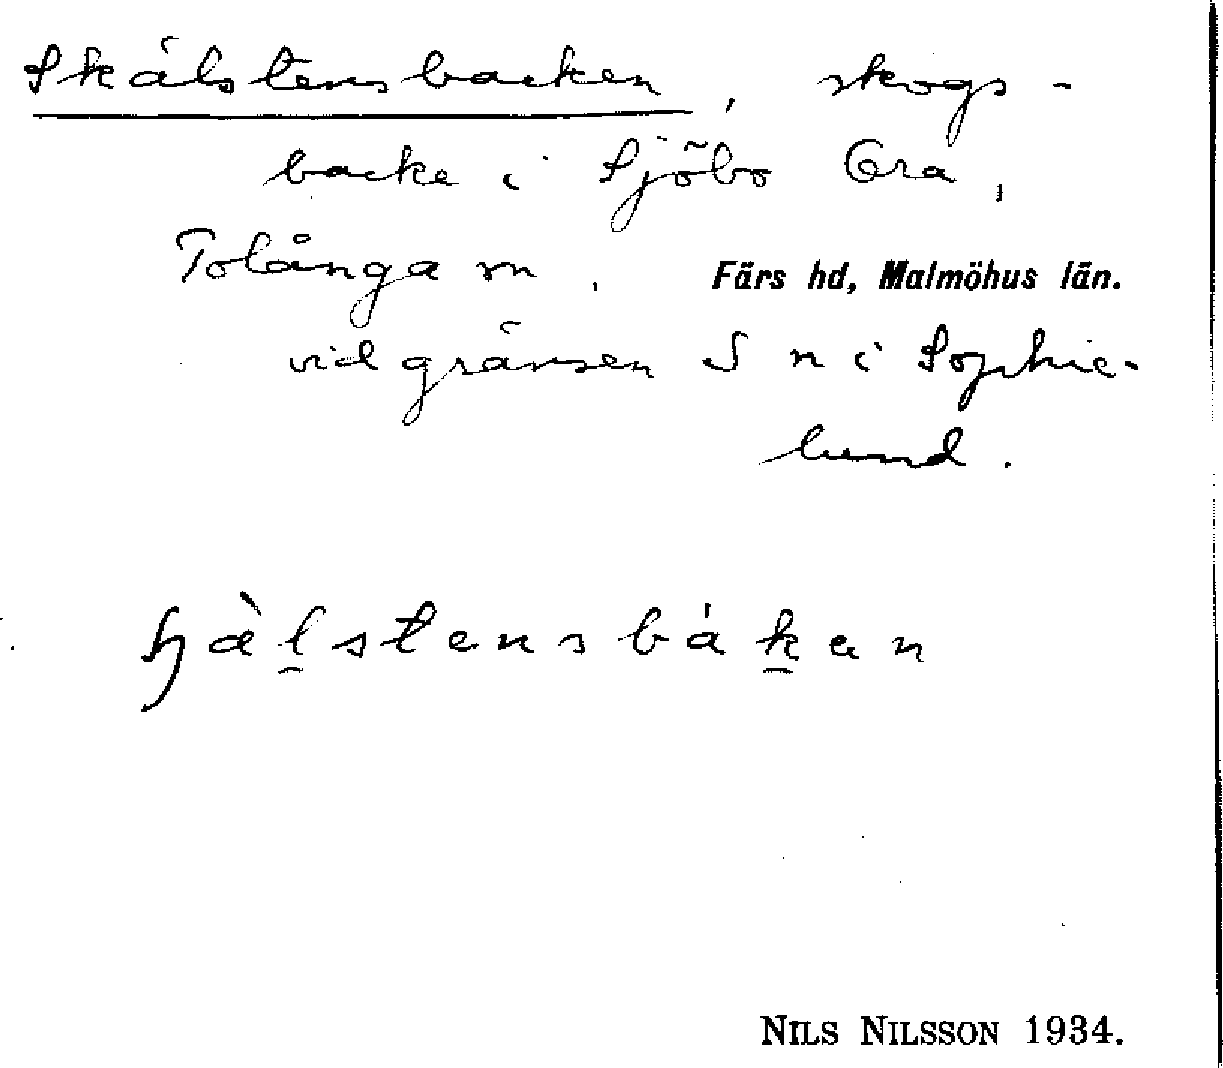 Skälstensbacken, skogs-
backe i Sjöbo Ora,
Tolånga sn. Färs hd, Malmöhus län.
vid gränsen S n i Sophie-
lund.
NILS NILSSON 1934.